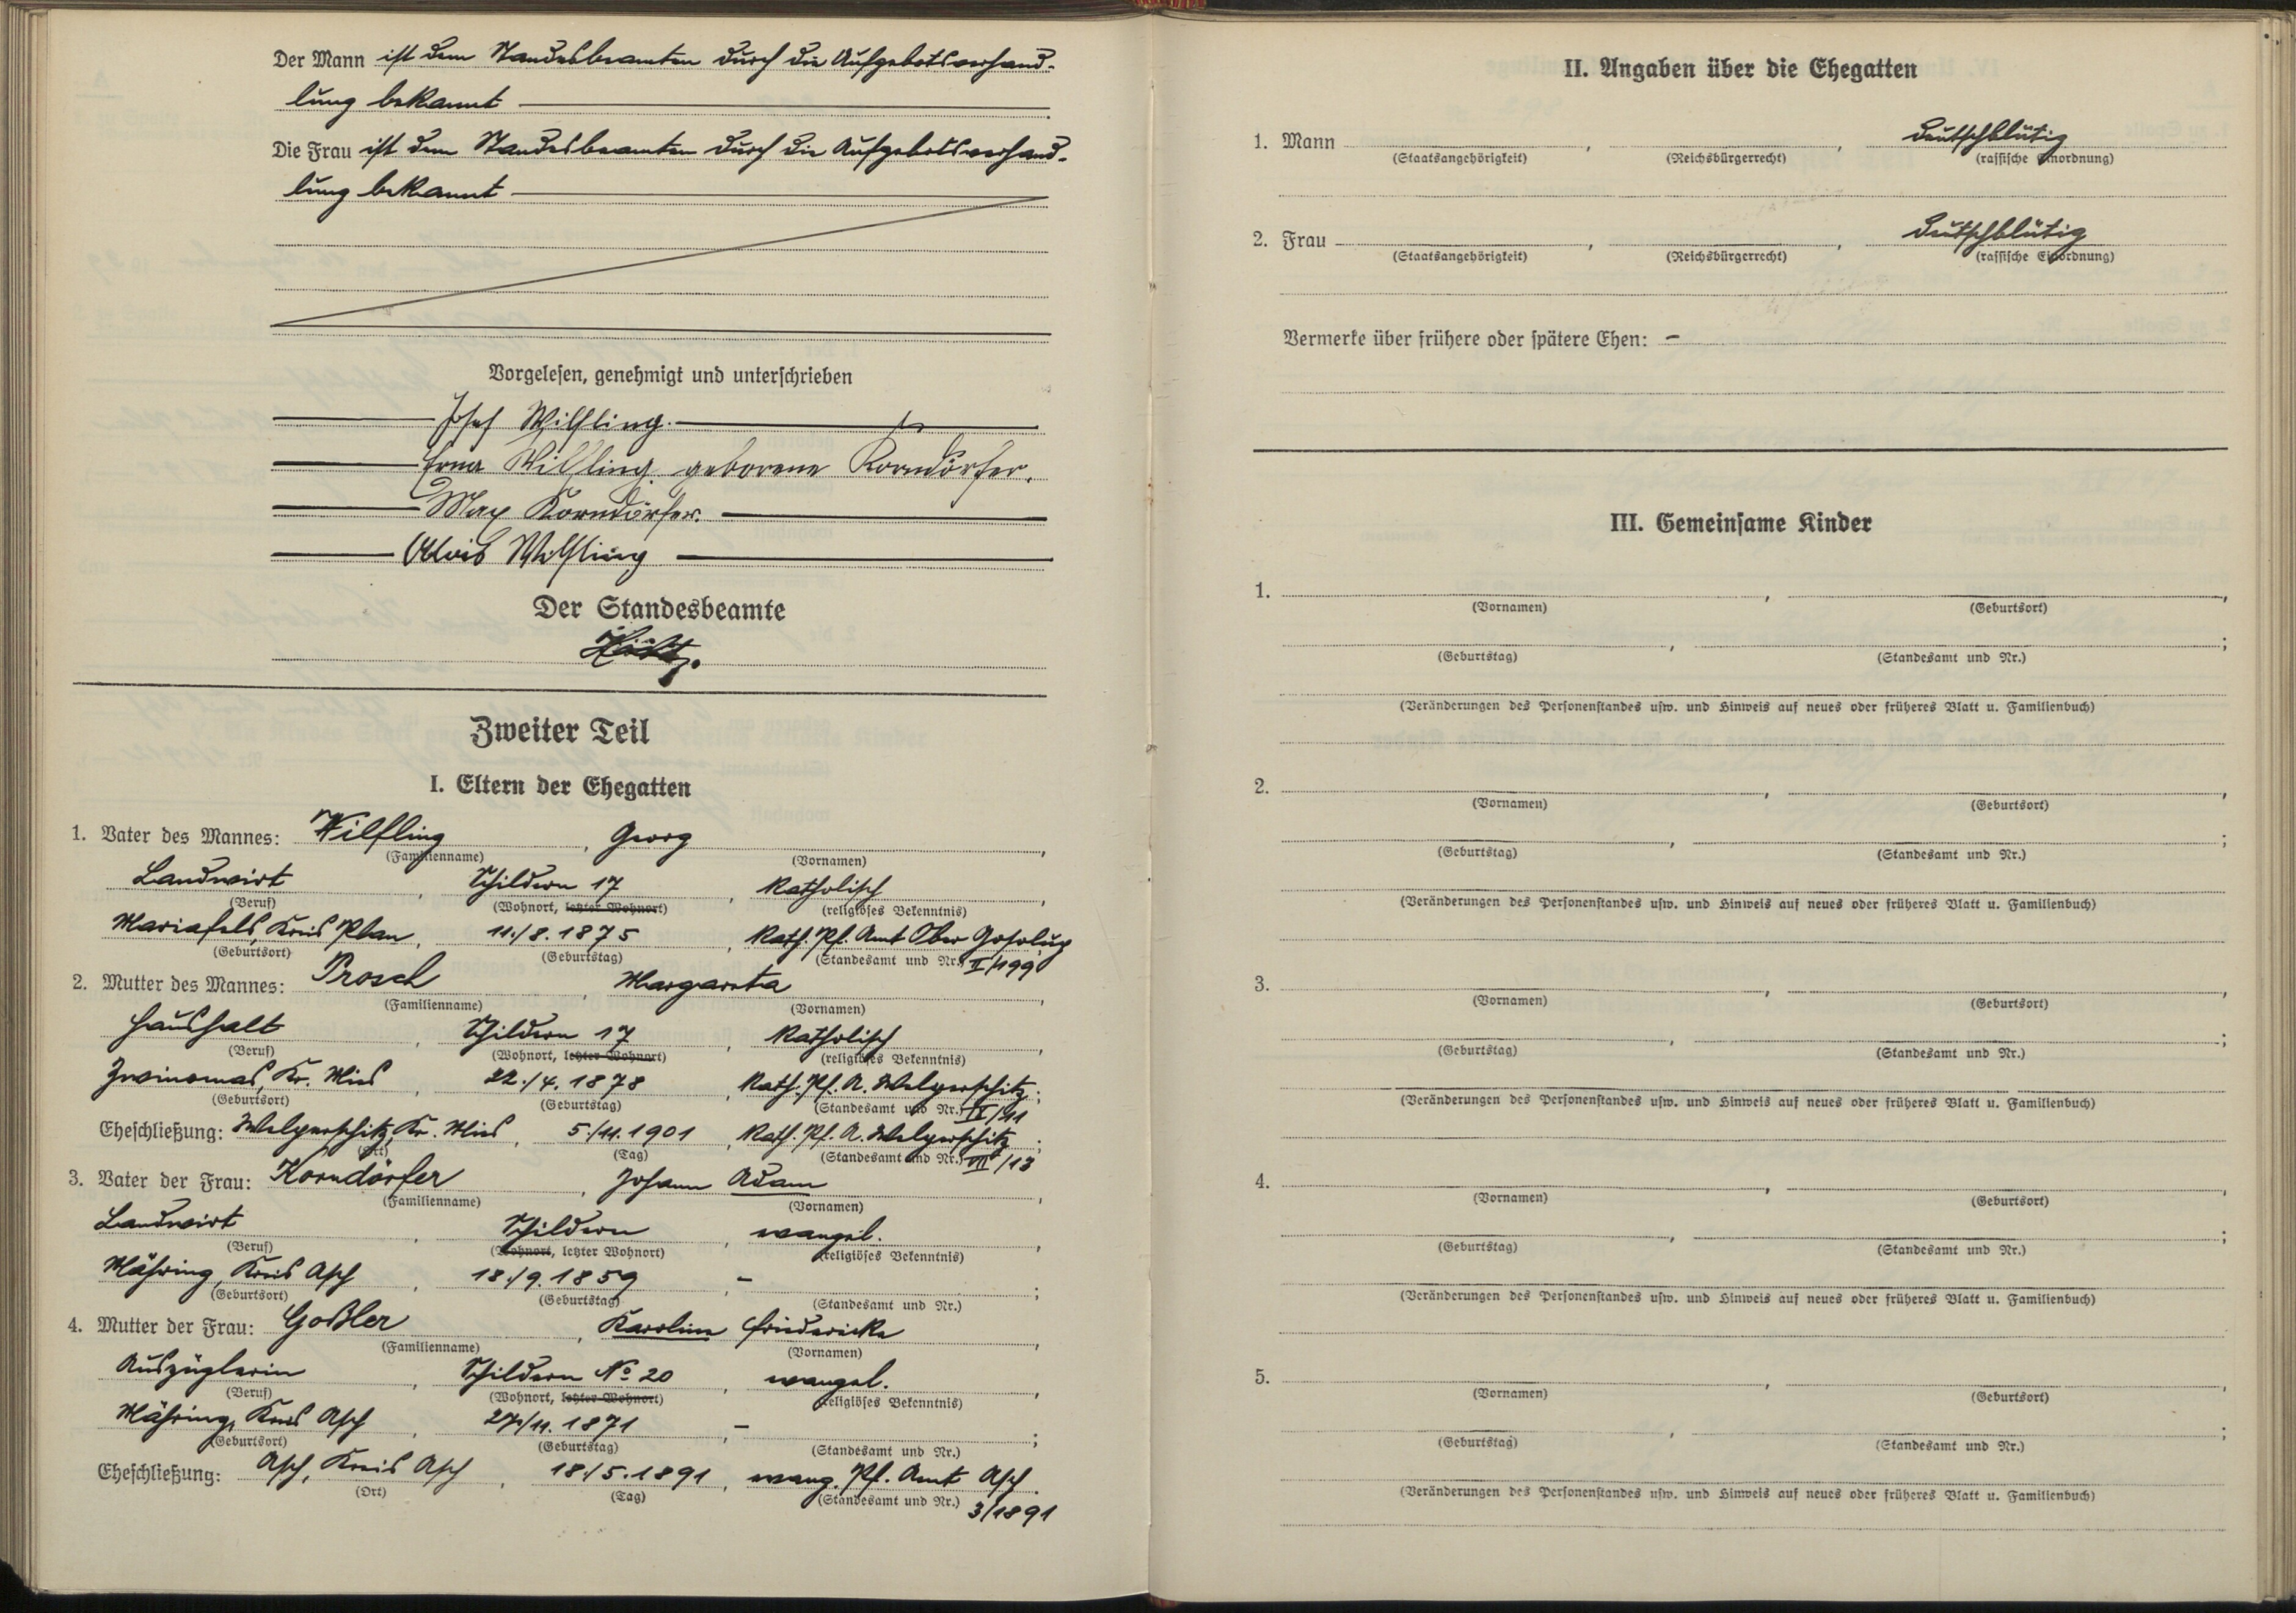 Der Mann ist dem Standesbeamten durch die Aufgebotsverhand-
lung bekannt
Die Frau ist dem Standesbeamten durch die Aufgebotsverhand-
lung bekannt
Vorgelesen, genehmigt und unterschrieben
Josef Wilfling.
Erna Wilfling geborene Korndörfer.
Max Korndörfer.
Alois Wilfling
Der Standesbeamte
Zweiter Teil
I. Eltern der Ehegatten
1. Vater des Mannes: Wilfling, Georg,
(Familienname) (Vornamen)
Landwirt, Schildern 17, katholisch,
(Beruf) (Wohnort, letzter Wohnort) (religiöses Bekenntnis)
Mariafels, Kreis Plan, 11./8.1875, Kath. Pf. Amt Ober Gosolup
(Geburtsort) (Geburtstag) (Standesamt und Nr.) II/199
2. Mutter des Mannes: Prosch, Margareta,
(Familienname) (Vornamen)
Haushalt, Schildern 17, katholisch,
(Beruf) (Wohnort, letzter Wohnort) (religiöses Bekenntnis)
Zwinomas, Kr. Mies, 22./4.1878, Kath. Pf. A. Welperschitz;
(Geburtsort) (Geburtstag) (Standesamt und Nr.) IX/41
Eheschließung: Welperschitz, Kr. Mies, 5./11.1901, Kath. Pf. A. Welperschitz;
(Ort) (Tag) (Standesamt und Nr.) VII/13
3. Vater der Frau: Korndörfer, Johann Adam,
(Familienname) (Vornamen)
Landwirt, Schildern, evangel.,
(Beruf) (Wohnort, letzter Wohnort) (religiöses Bekenntnis)
Mähring, Kreis Asch, 18./9.1859, -;
(Geburtsort) (Geburtstag) (Standesamt und Nr.)
4. Mutter der Frau: Goßler, Karolina Friedericke,
(Familienname) (Vornamen)
Auszüglerin, Schildern No 20, evangel.,
(Beruf) (Wohnort, letzter Wohnort) (religiöses Bekenntnis)
Mähring, Kreis Asch, 27./11.1871, -;
(Geburtsort) (Geburtstag) (Standesamt und Nr.)
Eheschließung: Asch, Kreis Asch, 18./5.1891, evang. Pf. Amt Asch.
(Ort) (Tag) (Standesamt und Nr.) 3/1891
II. Angaben über die Ehegatten
1. Mann , , deutschblütig
(Staatsangehörigkeit) (Reichsbürgerrecht) (rassische Einordnung)
2. Frau , , deutschblütig
(Staatsangehörigkeit) (Reichsbürgerrecht) (rassische Einordnung)
Vermerke über frühere oder spätere Ehen: -
III. Gemeinsame Kinder
1. , ,
(Vornamen) (Geburtsort)
(Geburtstag) (Standesamt und Nr.)
(Veränderungen des Personenstandes usw. und Hinweis auf neues oder früheres Blatt u. Familienbuch)
2. , ,
(Vornamen) (Geburtsort)
(Geburtstag) (Standesamt und Nr.)
(Veränderungen des Personenstandes usw. und Hinweis auf neues oder früheres Blatt u. Familienbuch)
3. , ,
(Vornamen) (Geburtsort)
(Geburtstag) (Standesamt und Nr.)
(Veränderungen des Personenstandes usw. und Hinweis auf neues oder früheres Blatt u. Familienbuch)
4. , ,
(Vornamen) (Geburtsort)
(Geburtstag) (Standesamt und Nr.)
(Veränderungen des Personenstandes usw. und Hinweis auf neues oder früheres Blatt u. Familienbuch)
5. , ,
(Vornamen) (Geburtsort)
(Geburtstag) (Standesamt und Nr.)
(Veränderungen des Personenstandes usw. und Hinweis auf neues oder früheres Blatt u. Familienbuch)